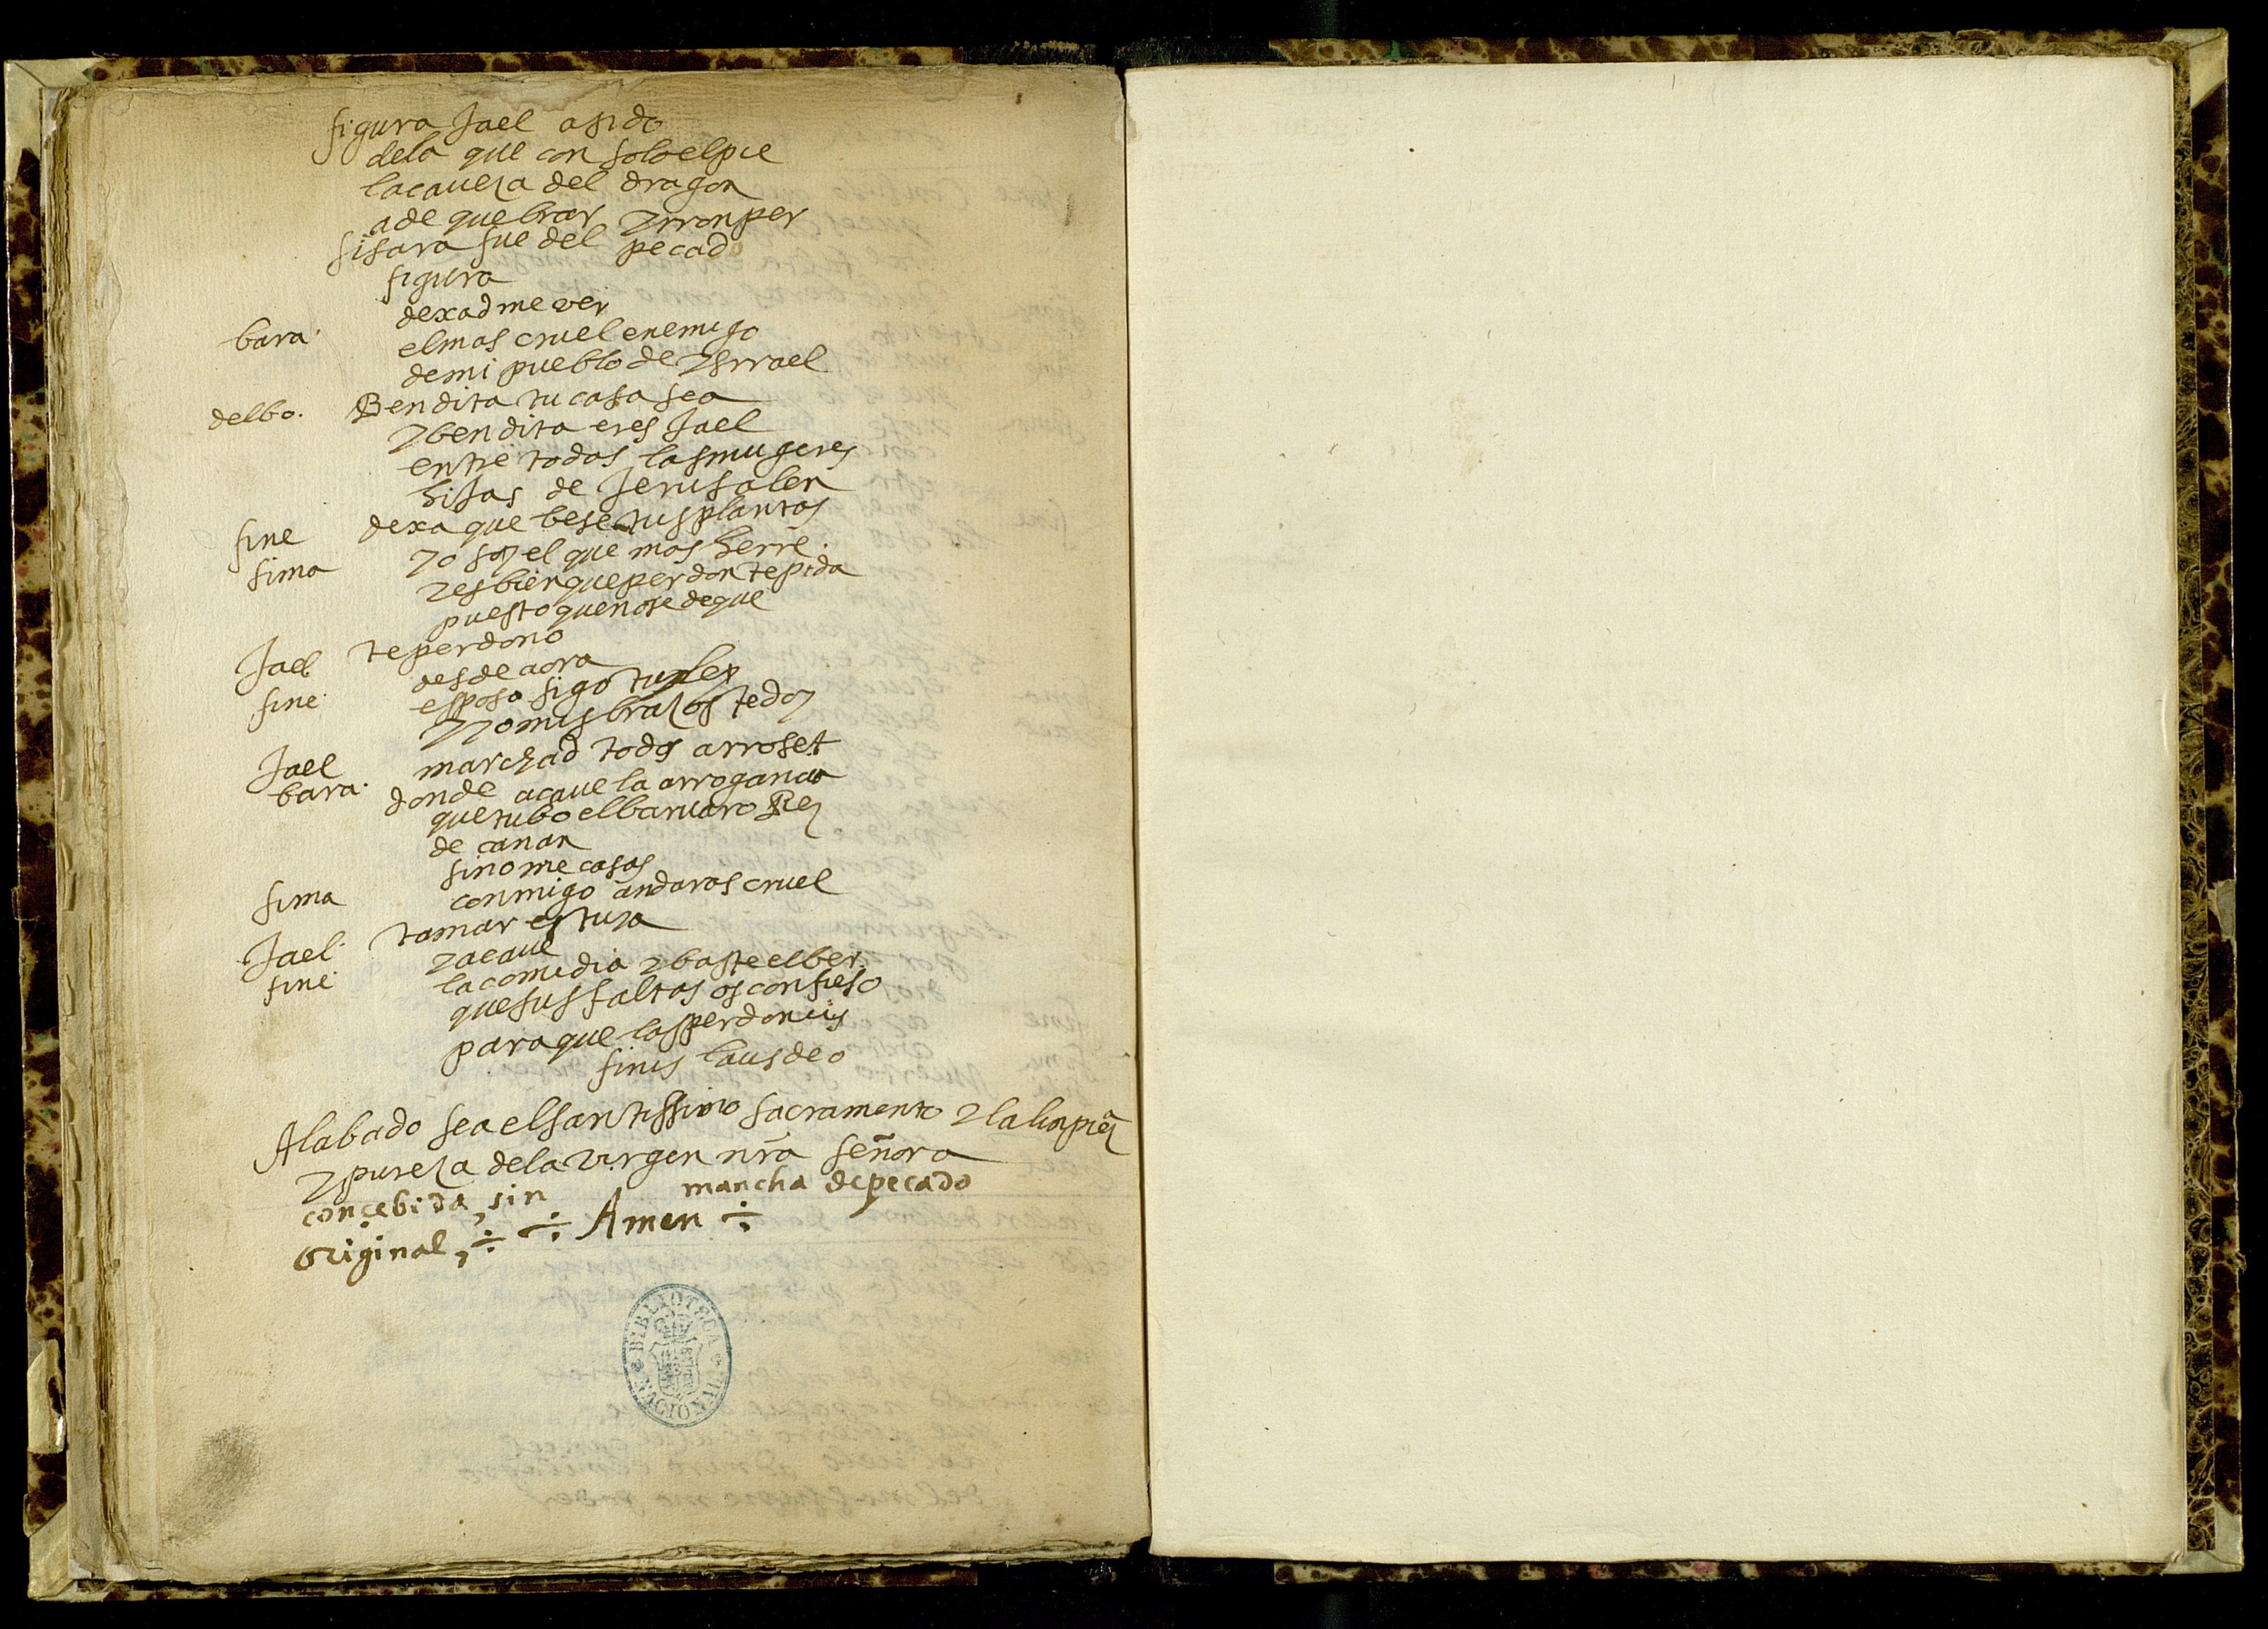 figura Jael asido
dela que con solo el pie
la caueza del dragon
a de quebrar y rronper
sisara fue del pecado
figura
bara. dexadme ver
el mas cruel enemigo
de mi pueblo de ysrrael
delbo. Bendita tu casa sea
y bendita eres Jael
entre todas las mugeres
hijas de Jerusalen
fine dexa que bese tus plantas
sima yo soy el que mas herre
y es bien que perdon te pida
puesto que no se de que
Jael te perdono
fine desde aora
esposa sigo tu ley
Jael y yo mis brazos te doy
bara. marchad todos arroset
donde acaue la arrogancia
que tubo el baruaro Rey
de canan
sima sino me casas
conmigo andaras cruel
Jael. tamar es tuya
fine y acaue
la comedia y baste el ber
que sus faltas os confieso
para que las perdoneis
finis laus deo
Alabado sea el santissimo sacramento y la linpieza
y pureza dela virgen nra señora
concebida, sin mancha de pecado
original, ÷ ÷ Amen ÷
BIBLIOTECA NACIONAL